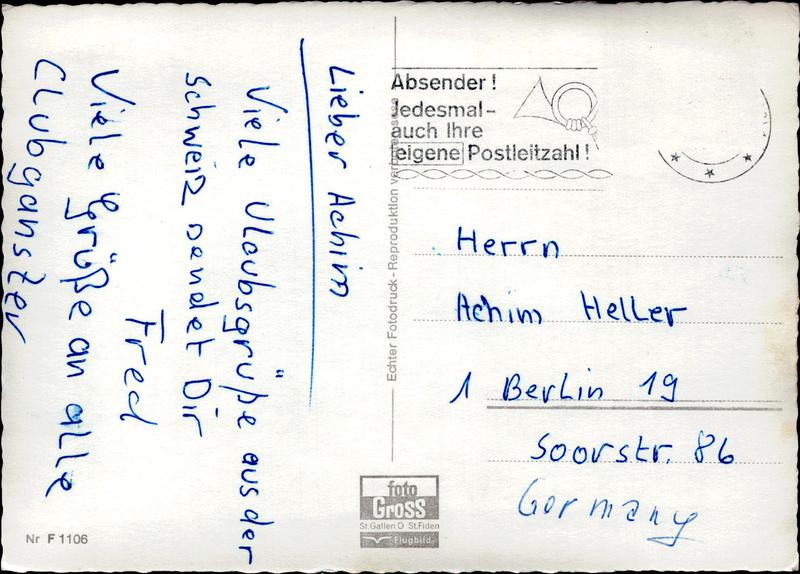 Lieber Achim
Viele Ulaubsgrüße aus der
Schweiz sendet Dir
Fred
Viele Grüße an alle
Clubganszer
Absender!
Jedesmal-
auch Ihre
eigene Postleitzahl!
Echter Fotodruck - Reproduktion
Herrn
Achim Heller
1 Berlin 19
Soorstr. 86
Germany
foto
Gross
St.Gallen O St.Fiden
Flugbild
Nr F 1106